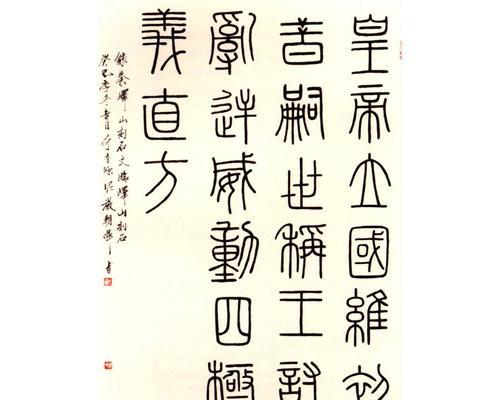 皇帝立國維初
昔嗣世稱王討
亂逆威動四極
義直方
錄秦嶧山刻石文臨嶧山刻石
癸巳季冬吉日書